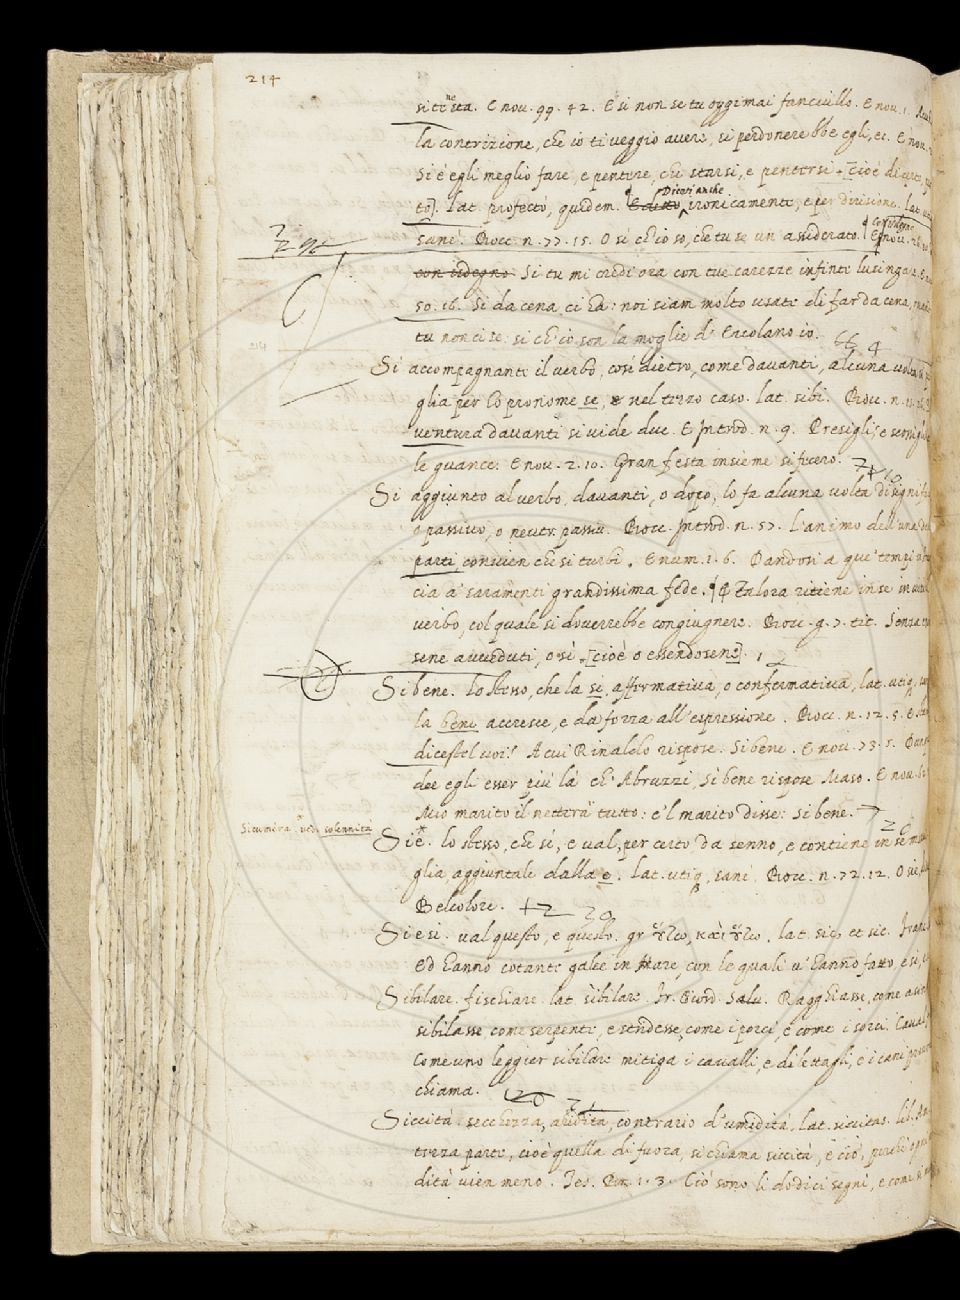 214
sitri sta. E nou. 99. 42. E si non se tu oggimai fanciullo. E nou. 1.
la contrizione, che io ti veggio avere, si perdonerebbe egli, ec. E nou.
Si è egli meglio fare, e pentere, che starsi, e pentersi [cioè di certo,
Dicesi anche
to]. lat. profectò, quidem. E detto ironicamente, e per derisione. lat.
Con sdegno
sanè. Bocc. n. 77. 15. O sì ch'io so, che tu se' un assiderato. E nou. 26.
con isdegno Si tu mi credi ora con tue carezze infinte lusingare. E
50. 16. Si da cena ci ha: noi siam molto usate di far da cena,
tu non ci se: si ch'io son la moglie d'Ercolano io. 66 4
Si accompagnante il verbo, così dietro, come davanti, alcuna volta si
glia per lo pronome se, e nel terzo caso. lat. sibi. Bocc. n.
ventura davanti si vide due. E Introd. n. 9. Presigli, e
le guance. E nou. 2. 10. Gran festa insieme si fecero.
Si aggiunto al verbo, davanti, o dopo, lo fa alcuna volta di
o passivo, o neutr. passiu. Bocc. Introd. n. 57. L'animo dell'una
parti, convien che si turbi. E num. 1. 6. Dandosi a que' tempi
cia a' saramenti grandissima fede. Talora ritiene in se
verbo, col quale si doverrebbe congiugnere. Bocc. g. 7. tit. Senza
sene avveduti, o sì [cioè o essendosene]. 1
Si bene. lo stesso, che la si, affermativa, o confermativa, lat. utiq.
la bene accresce, e dà forza all'espressione. Bocc. n. 12. 5. E
dicestel voi? A cui Rinaldo rispose. Si bene. E nou. 73. 5.
dee egli esser più là ch'Abruzzi, Si bene rispose Maso. E nou.
Mio marito il netterà tutto: e'l marito disse: Si bene.
Sicumera ved. solennità
Siè. lo stesso, che sì, e val, per certo, da senno, e contiene in se
glia, aggiuntale dalla e. Lat. utiq, sanè. Bocc. n. 72. 12. O sie,
Belcolore. 72 20
Si e si. val questo, e questo. gr οὕτω, καὶ οὕτω. lat. sic, et sic.
ed hanno cotante galee in mare, con le quali v'hanno fatto, e si,
Sibilare. fischiare. lat. sibilare. Fr. Giord. Salv. Ragghiasse, come
sibilasse come serpenti, e stridesse, come i porci, e come i sorci.
Come uno leggier sibilare mitiga i cavalli, e dilettagli, e i cani
chiama. 120
Siccità: secchezza, aridità, contrario d'umidità. Lat. siccitas. lib.
terza parte, cioè quella di fuora, si chiama siccità, e ciò, perchè
dità vien meno. Tes. Br. 1. 3. Ciò sono li dodici segni, e come